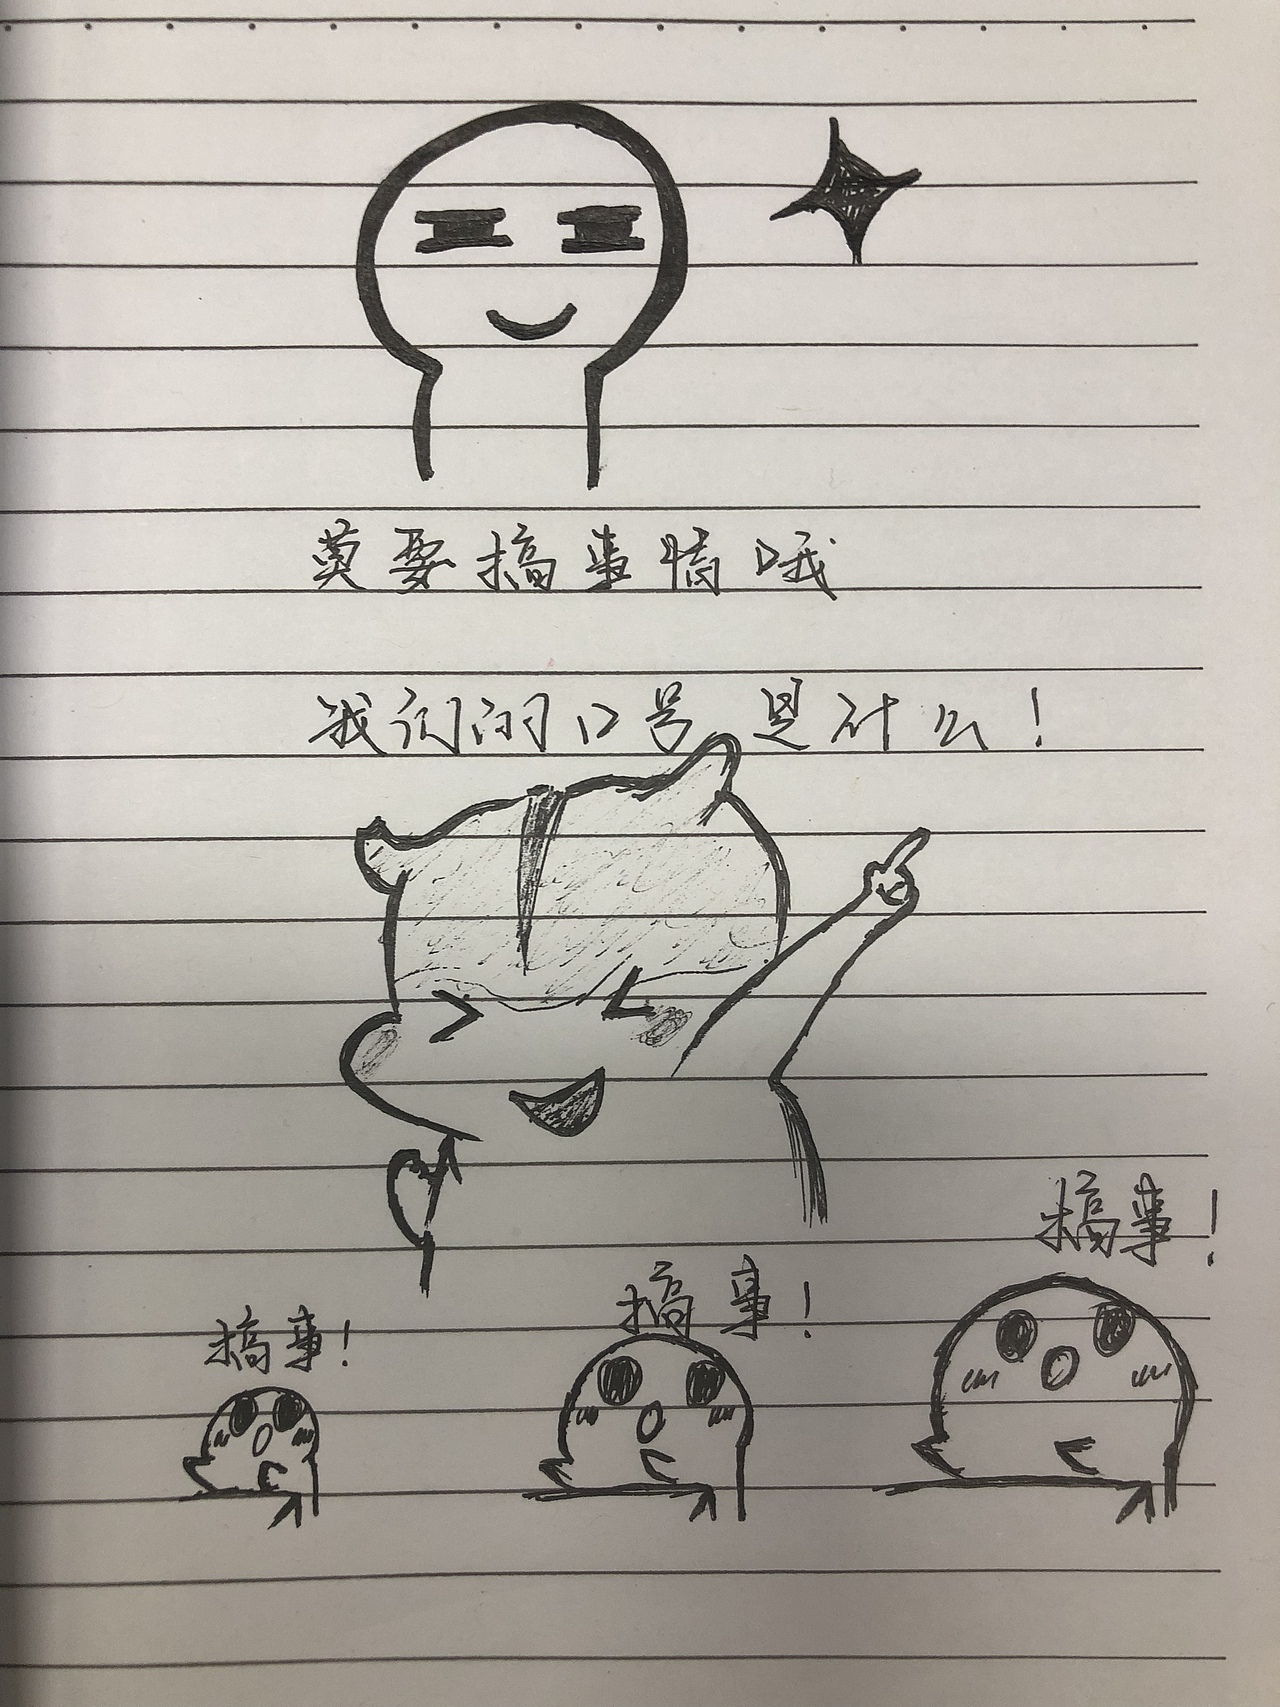 莫要搞事情哦
我们的口号是什么！
搞事！
搞事！
搞事！